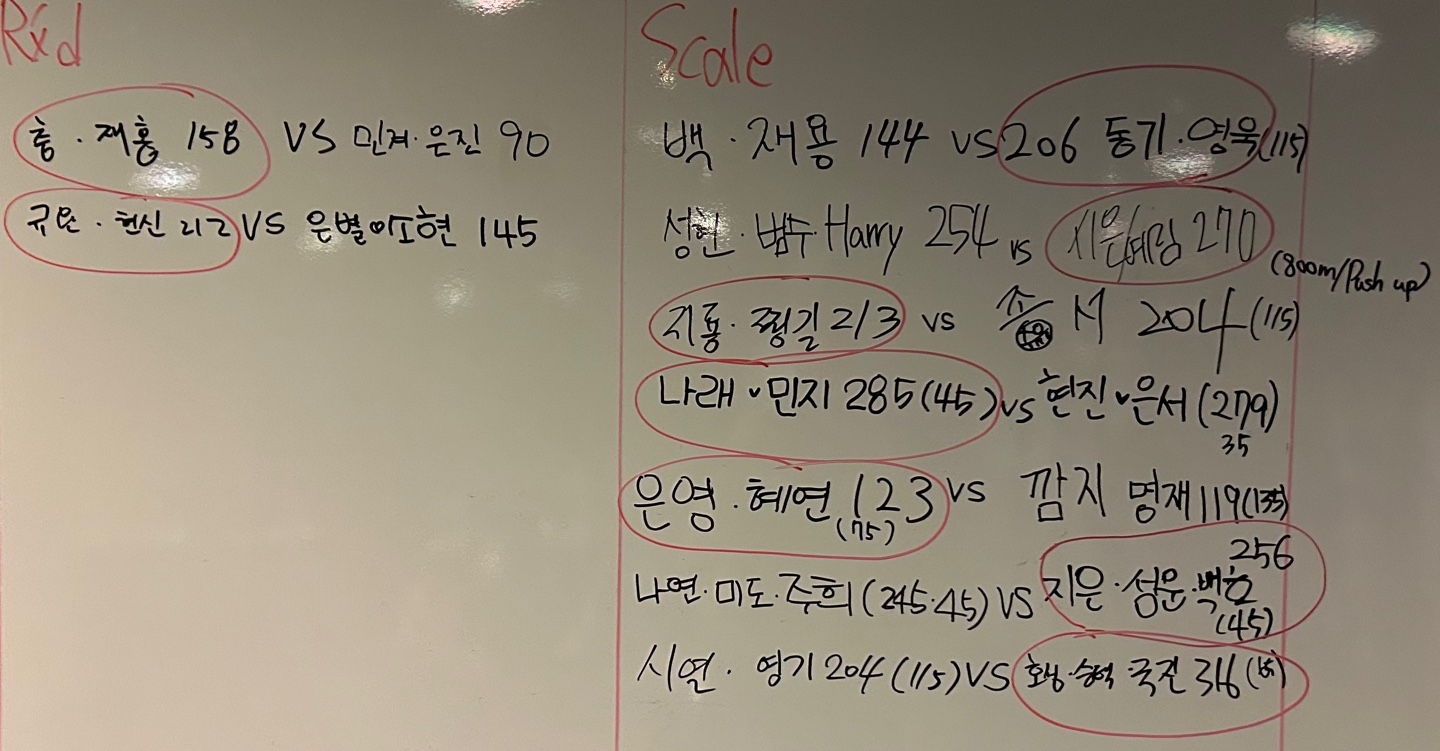 Rxd
홍 · 재홍 158 VS 민겨 · 은진 90
규문 · 현신 212 VS 은별이소현 145
Scale
백 · 재용 144 VS 206 동기 · 영욱(115)
성현 · 범수 · Harry 254 VS 시은/예림 270
(800m/Push up)
지룡 · 찡길 213 vs 송 M 204 (115)
나래 · 민지 285(45) VS 현진 · 은서 (279)
35
은영 · 혜연 123 VS 깜지 명재 119(135)
(75)
256
나연 · 미도 · 주희 (245 · 45) VS 지은 · 성문 · 백호
(45)
시연 · 영기 204 (115) VS 국진 316